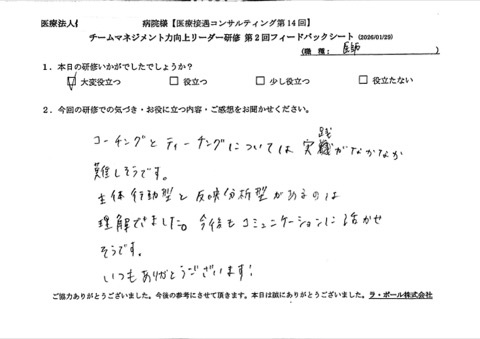 医療法人 病院様【医療接遇コンサルティング第14回】
チームマネジメント力向上リーダー研修 第2回フィードバックシート (2026/01/29)
(職 種: 医師 )
1.本日の研修いかがでしたでしょうか?
☑ 大変役立つ □ 役立つ □ 少し役立つ □ 役立たない
2.今回の研修での気づき・お役に立つ内容・ご感想をお聞かせください。
コーチングとティーチングについては実践がなかなか
難しそうです。
主体行動型と反映分析型があるのは
理解できました。今後もコミュニケーションに活かせ
そうです。
いつもありがとうございます!
ご協力ありがとうございました。今後の参考にさせて頂きます。本日は誠にありがとうございました。ラ・ポール株式会社